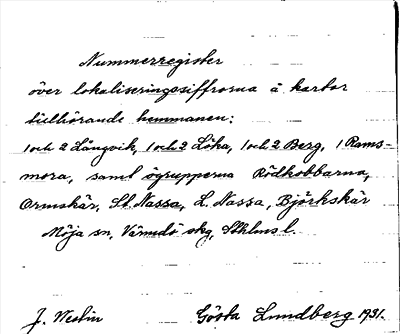 Nummerregister
över lokaliseringssiffrorna å kartor
tillhörande hemmanen:
1 och 2 Långvik, 1 och 2 Löka, 1 och 2 Berg, 1 Rams-
mora, samt ögrupperna Rödkobbarna,
Ormskär, St. Nassa, L. Nassa, Björkskär
Möja sn, Värmdö skg, Sthlms l.
J. Westin Gösta Lundberg 1931.